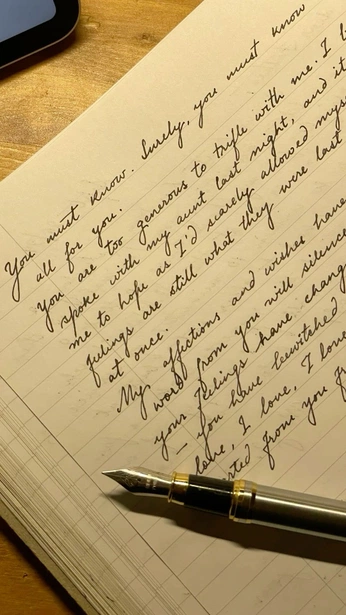 You must know. Surely, you must know
all for you.
You are too generous to trifle with me. I
spoke with my aunt last night, and it
me to hope as I'd scarely allowed mys
feelings are still what they were last
at once.
My affections and wishes have
word from you will silence
your feelings have chang
– you have bewitched
love, I love, I love
rted from you f